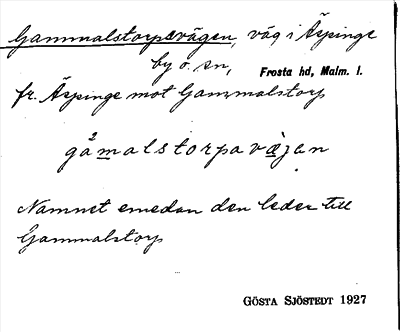 Gammalstorpsvägen, väg i Äspinge
by o. sn, Frosta hd, Malm. l.
fr. Äspinge mot Gammalstorp
gåmalstorpavæ̀jan
Namnet emedan den leder till
Gammalstorp
GÖSTA SJÖSTEDT 1927